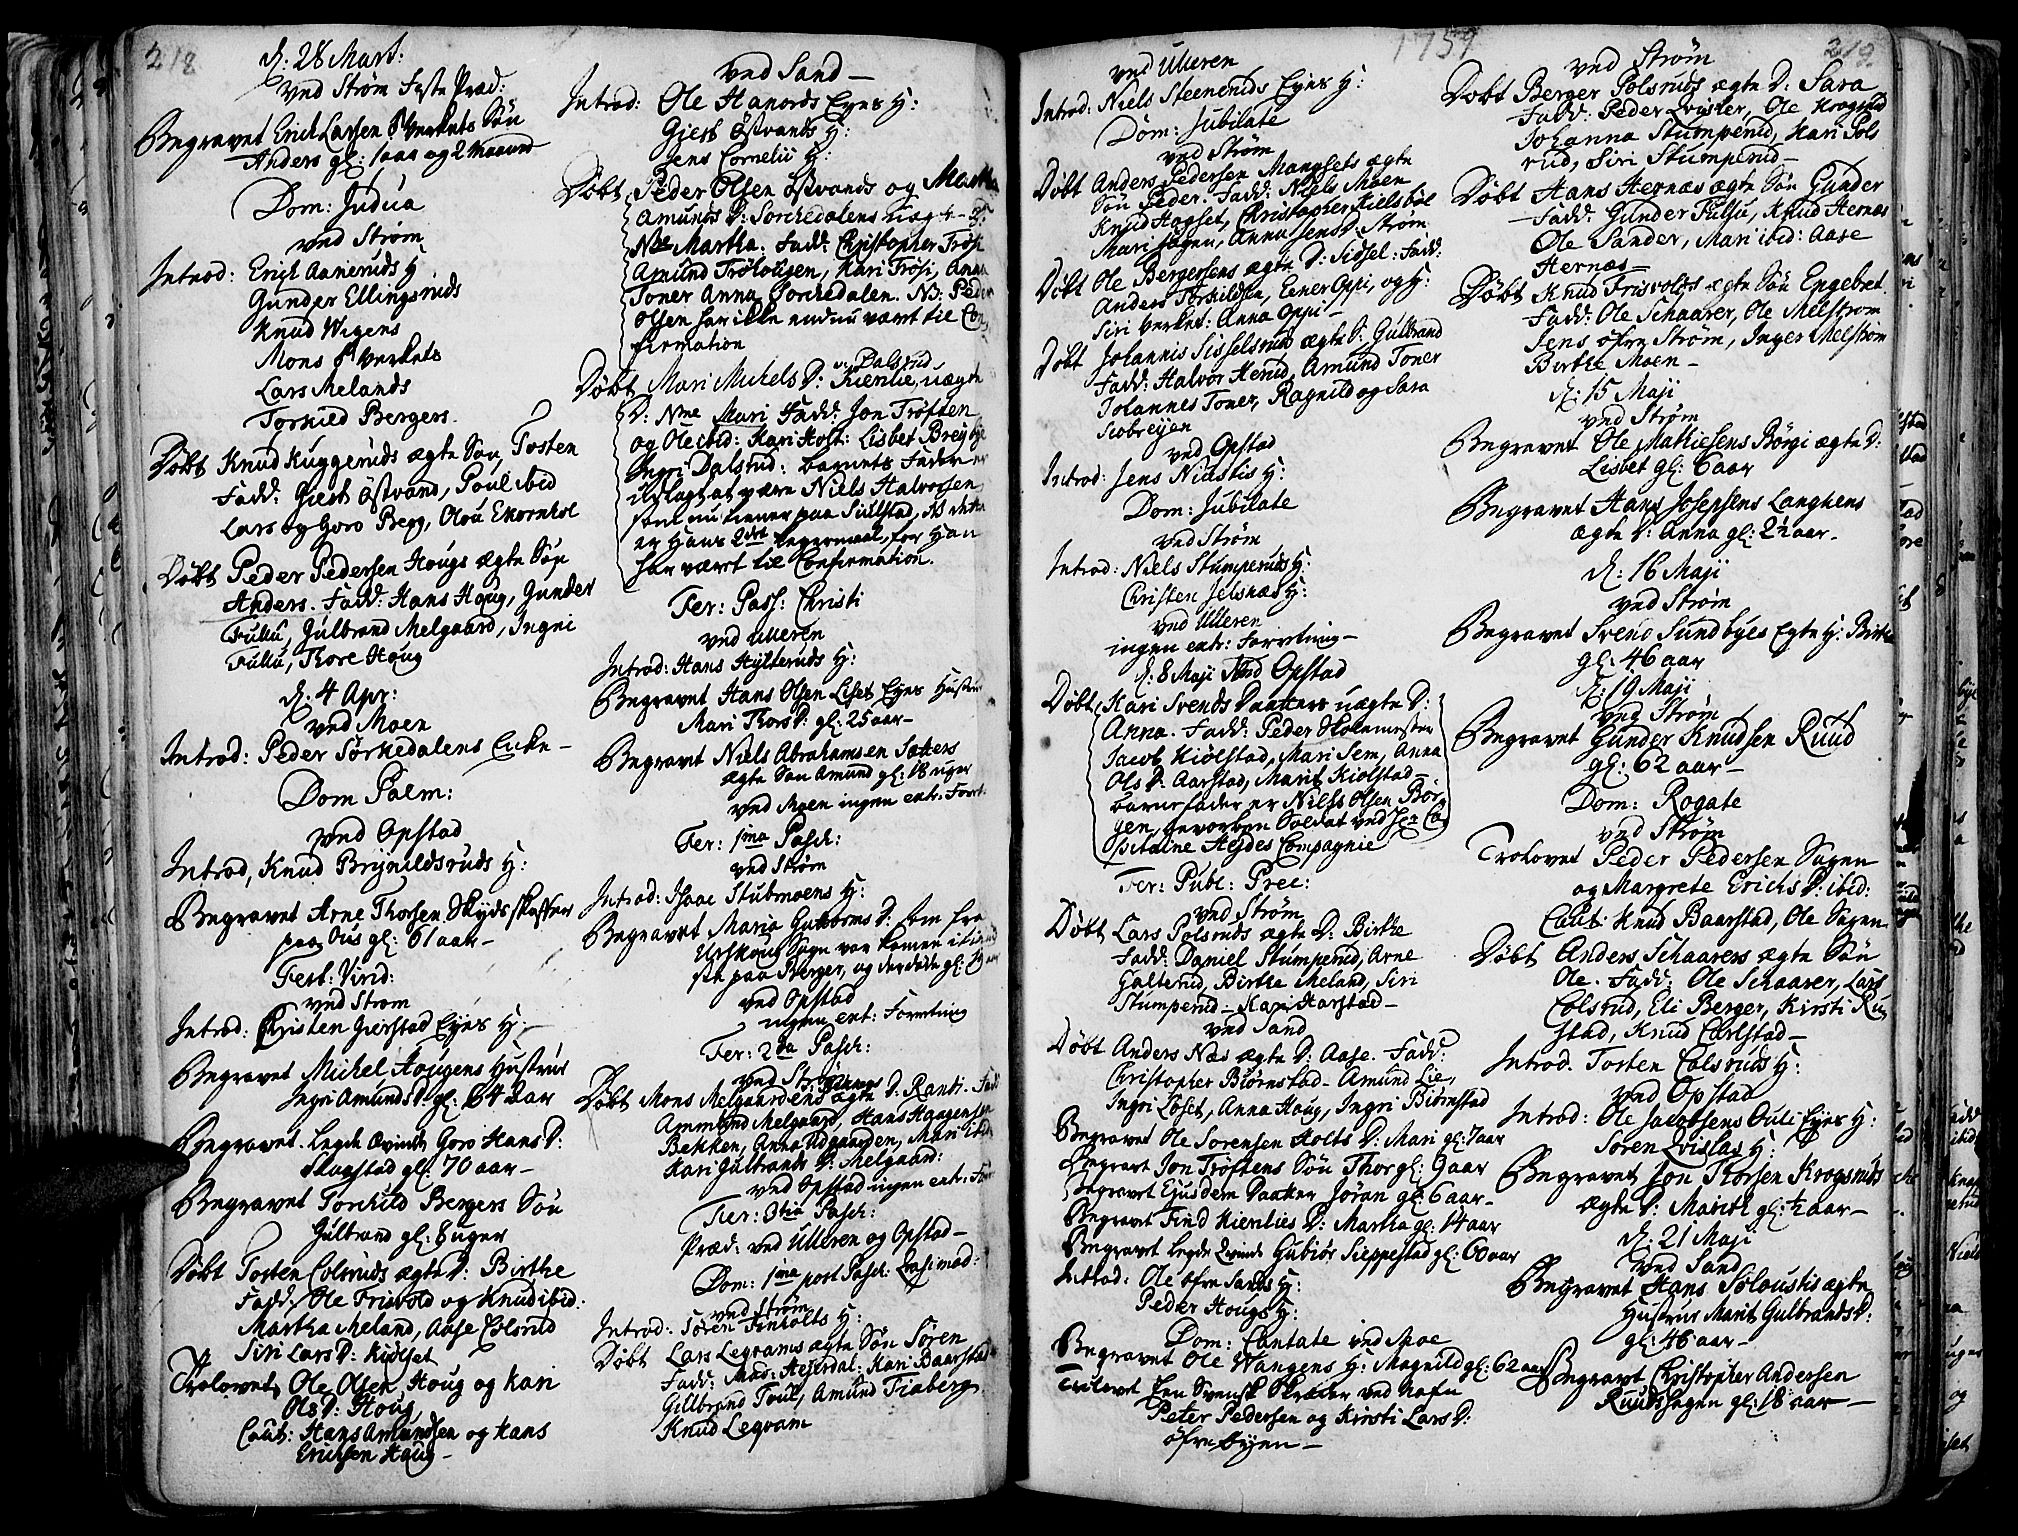 218
d: 28 Mart:
ved Strøm Faste Præd:
Begravet Erich Larsen Verkets Søn
Anders gl: 1 aar og 2 Maaned
Dom: Judica
ved Strøm
Introd: Erich Aaneruds H
Gunder Ellingsruds
Knud Wigens
Mons Verkets
Lars Melands
Torkild Bergers.
Døbt Knud Kuggeruds ægte Søn Tosten
Fadd: Giert Østvand, Poul ibid
Lars og Goro Berg, Olou Ekornhol
Døbt Peder Pedersen Hougs ægte Søn
Anders. Fadd: Hans Houg, Gunder
Fullu, Gulbrand Melgaard, Ingri
Fullu, Thore Houg
d: 4 Apr:
ved Moen
Introd: Peder Sørkedalens Enke –
Dom Palm:
ved Opstad
Introd, Knud Brynildsruds H:
Begravet Arne Thorsen Skydsskaffer
paa Ous gl: 61 aar –
Fest: Virid:
ved Strøm
Introd: Christen Gierstad Eyes H –
Begravet Michel Hougens Hustrue
Ingri Amunds D: gl: 64 aar
Begravet. Legde Qvinde Goro Hans D:
Skagstad gl: 70 aar –
Begravet Torchild Bergers Søn
Gulbrand gl: 8 uger
Døbt Tosten Colsruds ægte D: Birthe
Fadd: Ole Frisvold og Knud ibid:
Martha Meland, Aase Colsrud
Siri Lars D: Kiølset
Trolovet Ole Olsen Houg og Kari
Ols D: Houg
Caut: Hans Amundsen og Hans
Erichsen Houg –
ved Sand –
Introd: Ole Hanords Eyes H:
Giert Østvands H:
Jens Cornelii H:
Døbt Peder Olsen Østvands og Martha
Amunds D: Sørkedalens uægte D:
Nne Martha. Fadd: Christopher Trøsi
Amund Trøtougen, Kari Trøsi, Anna
Toner Anna Sørchedalen. NB: Peder
Olsen har ikke endnu været til Con
firmation
Døbt Mari Michels D: Kienlie, uægte
v. Dalsrud
D: Nne Mari Fadd: Jon Trøften
og Ole ibid: Kari Holt: Lisbet Breybye
Ingri Dalsrud: barnets Fader er
udlagt at være Niels Halvorsen
som nu tiener paa Siulstad, NB dette
er Hans 2det Legermaal, for Han
har været til Confirmation.
Fer: Pass: Christi
ved Ulleren
Introd: Hans Hylleruds H:
Begravet Hans Olsen Liset Eyes Hustrue
Mari Thors D: gl: 25 aar –
Begravet Niels Abrahamsen Sætters
ægte Søn Amund gl: 18 uger
ved Moen ingen extr: Forret:
Fer: 1ma Pasch:
ved Strøm
Introd: Isaac Stubmoens H:
Begravet Maria Guttorms D: som fra
Urskoug Sogn var komen i tiene
ste paa Berger, og der døde gl:
ved Opstad
ingen ext: Forretning
Fer: 2da Pasch:
ved Strøm
Døbt Mons Melgaardens ægte D: Randi. Fadd
Ammund Melgaard, Hans Haagensen
Bekken, Anna Udgaarden, Mari ibid
Kari Gulbrands D: Melgaard:
ved Opstad ingen extr: Forr
Fer: 3tia Pasch:
Præd: ved Ulleren og Opstad –
Dom: 1ma post Pasch: Qvasimod:
ved Strøm
Introd: Søren Finholts H:
Døbt Lars Legrams ægte Søn Søren
Fadd: Mads Hejerdal: Kari Baarstad
Gulbrand Foul, Amund Fiaberg
Knud Legram
1759
219.
ved Ulleren
Introd: Niels Steeneruds Eyes H:
Dom: Jubilate
ved Strøm
Døbt Anders Pedersen Mangsets ægte
Søn Peder. Fadd: Niels Moen
Knud Hogset, Christopher Kielsbøl
Mari Hagen, Anna Jens D: Strøm
Døbt Ole Bergersens ægte D: Sidsel: Fadd:
Anders Torkildsen, Eener Oppi, og H:
Siri Verket: Anna Oppi –
Døbt Johannis Sisselsrud ægte S: Gulbrand
Fadd: Halvor Herud, Amund Toner
Johannes Toner, Ragnild og Sara
Scobreyen
ved Opstad
Introd: Jens Niustis H:
Dom: Jubilate
ved Strøm
Introd: Niels Stumperuds H:
Christen Selsnæs H:
ved Ulleren
ingen extr: Forretning –
d: 8 Maji ved Opstad
Døbt Kari Svends Daatters uægte D:
Anna. Fadd: Peder Skolemester
Jacob Kiølstad, Mari Sem, Anna
Ols D: Aarstad, Marit Kiølstad –
barnefader er Niels Olsen Bor
gen, geworben Soldat ved Hr Ca
pitaine Heydes Compagnie
Fer: Publ: Prec:
ved Strøm
Døbt Lars Polsruds ægte D: Birthe
Fadd: Daniel Stumperud, Arne
Galterud, Birthe Meland, Siri
Stumperud – Kari Harstad –
ved Sand
Døbt Anders Næs ægte D: Aase. Fadd:
Christopher Biørnstad – Amund Lie,
Ingri Løset, Anna Houg, Ingri Biørnstad
Begravet Ole Sørensen Holts D: Mari gl: 7 aar
Begravet Jon Trøftens Søn Thor gl: 9 aar
Begravet Ejusdem Daatter Jøran gl: 6 aar –
Begravet Find Kienlies D: Martha gl: 14 aar
Begravet Legde Qvinde Gubiør Sieppestad gl: 60 aar
Introd: Ole øfre Sands H:
Peder Hougs H:
Dom: Cantate ved Moe
Begravet Ole Wangens H: Magnild gl: 62 aar
Trolovet Een Svensk Skræder ved Nafn
Peter Pedersen og Kirsti Lars D:
øfre Byen –
ved Strøm
Døbt Berger Polsruds ægte D: Sara
Fadd: Peder Qvisler, Ole Krogsrud
Johanna Stumperud, Kari Pols
rud, Siri Stumperud –
Døbt Hans Hernæs ægte Søn Gunder
– Fadd: Gunder Fullu, Knud Hernæs
Ole Sander, Mari ibid: Aase
Hernæs –
Døbt Knud Frisvolds ægte Søn Engebret
Fadd: Ole Schaarer, Ole Melstrøm
Jens øfre Strøm, Inger Melstrøm
Birthe Moen –
d: 15 Maji
ved Strøm
Begravet Ole Mathiesens Børgi ægte D:
Lisbet gl: 6 aar
Begravet Hans Josephsens Langhens
ægte D: Anna gl: 2½ aar –
d: 16 Maji
ved Strøm
Begravet Svend Sundbyes Egte H: Birthe
gl: 46 aar
d: 19 Maji
ved Strøm
Begravet Gunder Knudsen Ruud
gl: 62 aar –
Dom: Rogate
ved Strøm
Trolovet Peder Pedersen Sagen
og Margrete Erichs D: ibid:
Caut: Knud Baarstad, Ole Sagen
Døbt Anders Schaarers ægte Søn
Ole. Fadd: Ole Schaarer, Lars
Colsrud, Eli Berger, Kirsti Ru
stad, Knud Carlstad –
Introd. Tosten Colsruds H:
ved Opstad
Introd: Ole Jacobsens Ouli Eyes H:
Søren Qvislas H:
Begravet Jon Thorsen Krogsruds
ægte D: Marith gl: ½ aar –
d: 21 Maji
ved Sand
Begravet Hans Soloustis ægte
Hustrue Marit Gulbrands D:
gl: 46 aar –
Begravet Christopher Andersen
Ruudshagen gl: 18 aar –